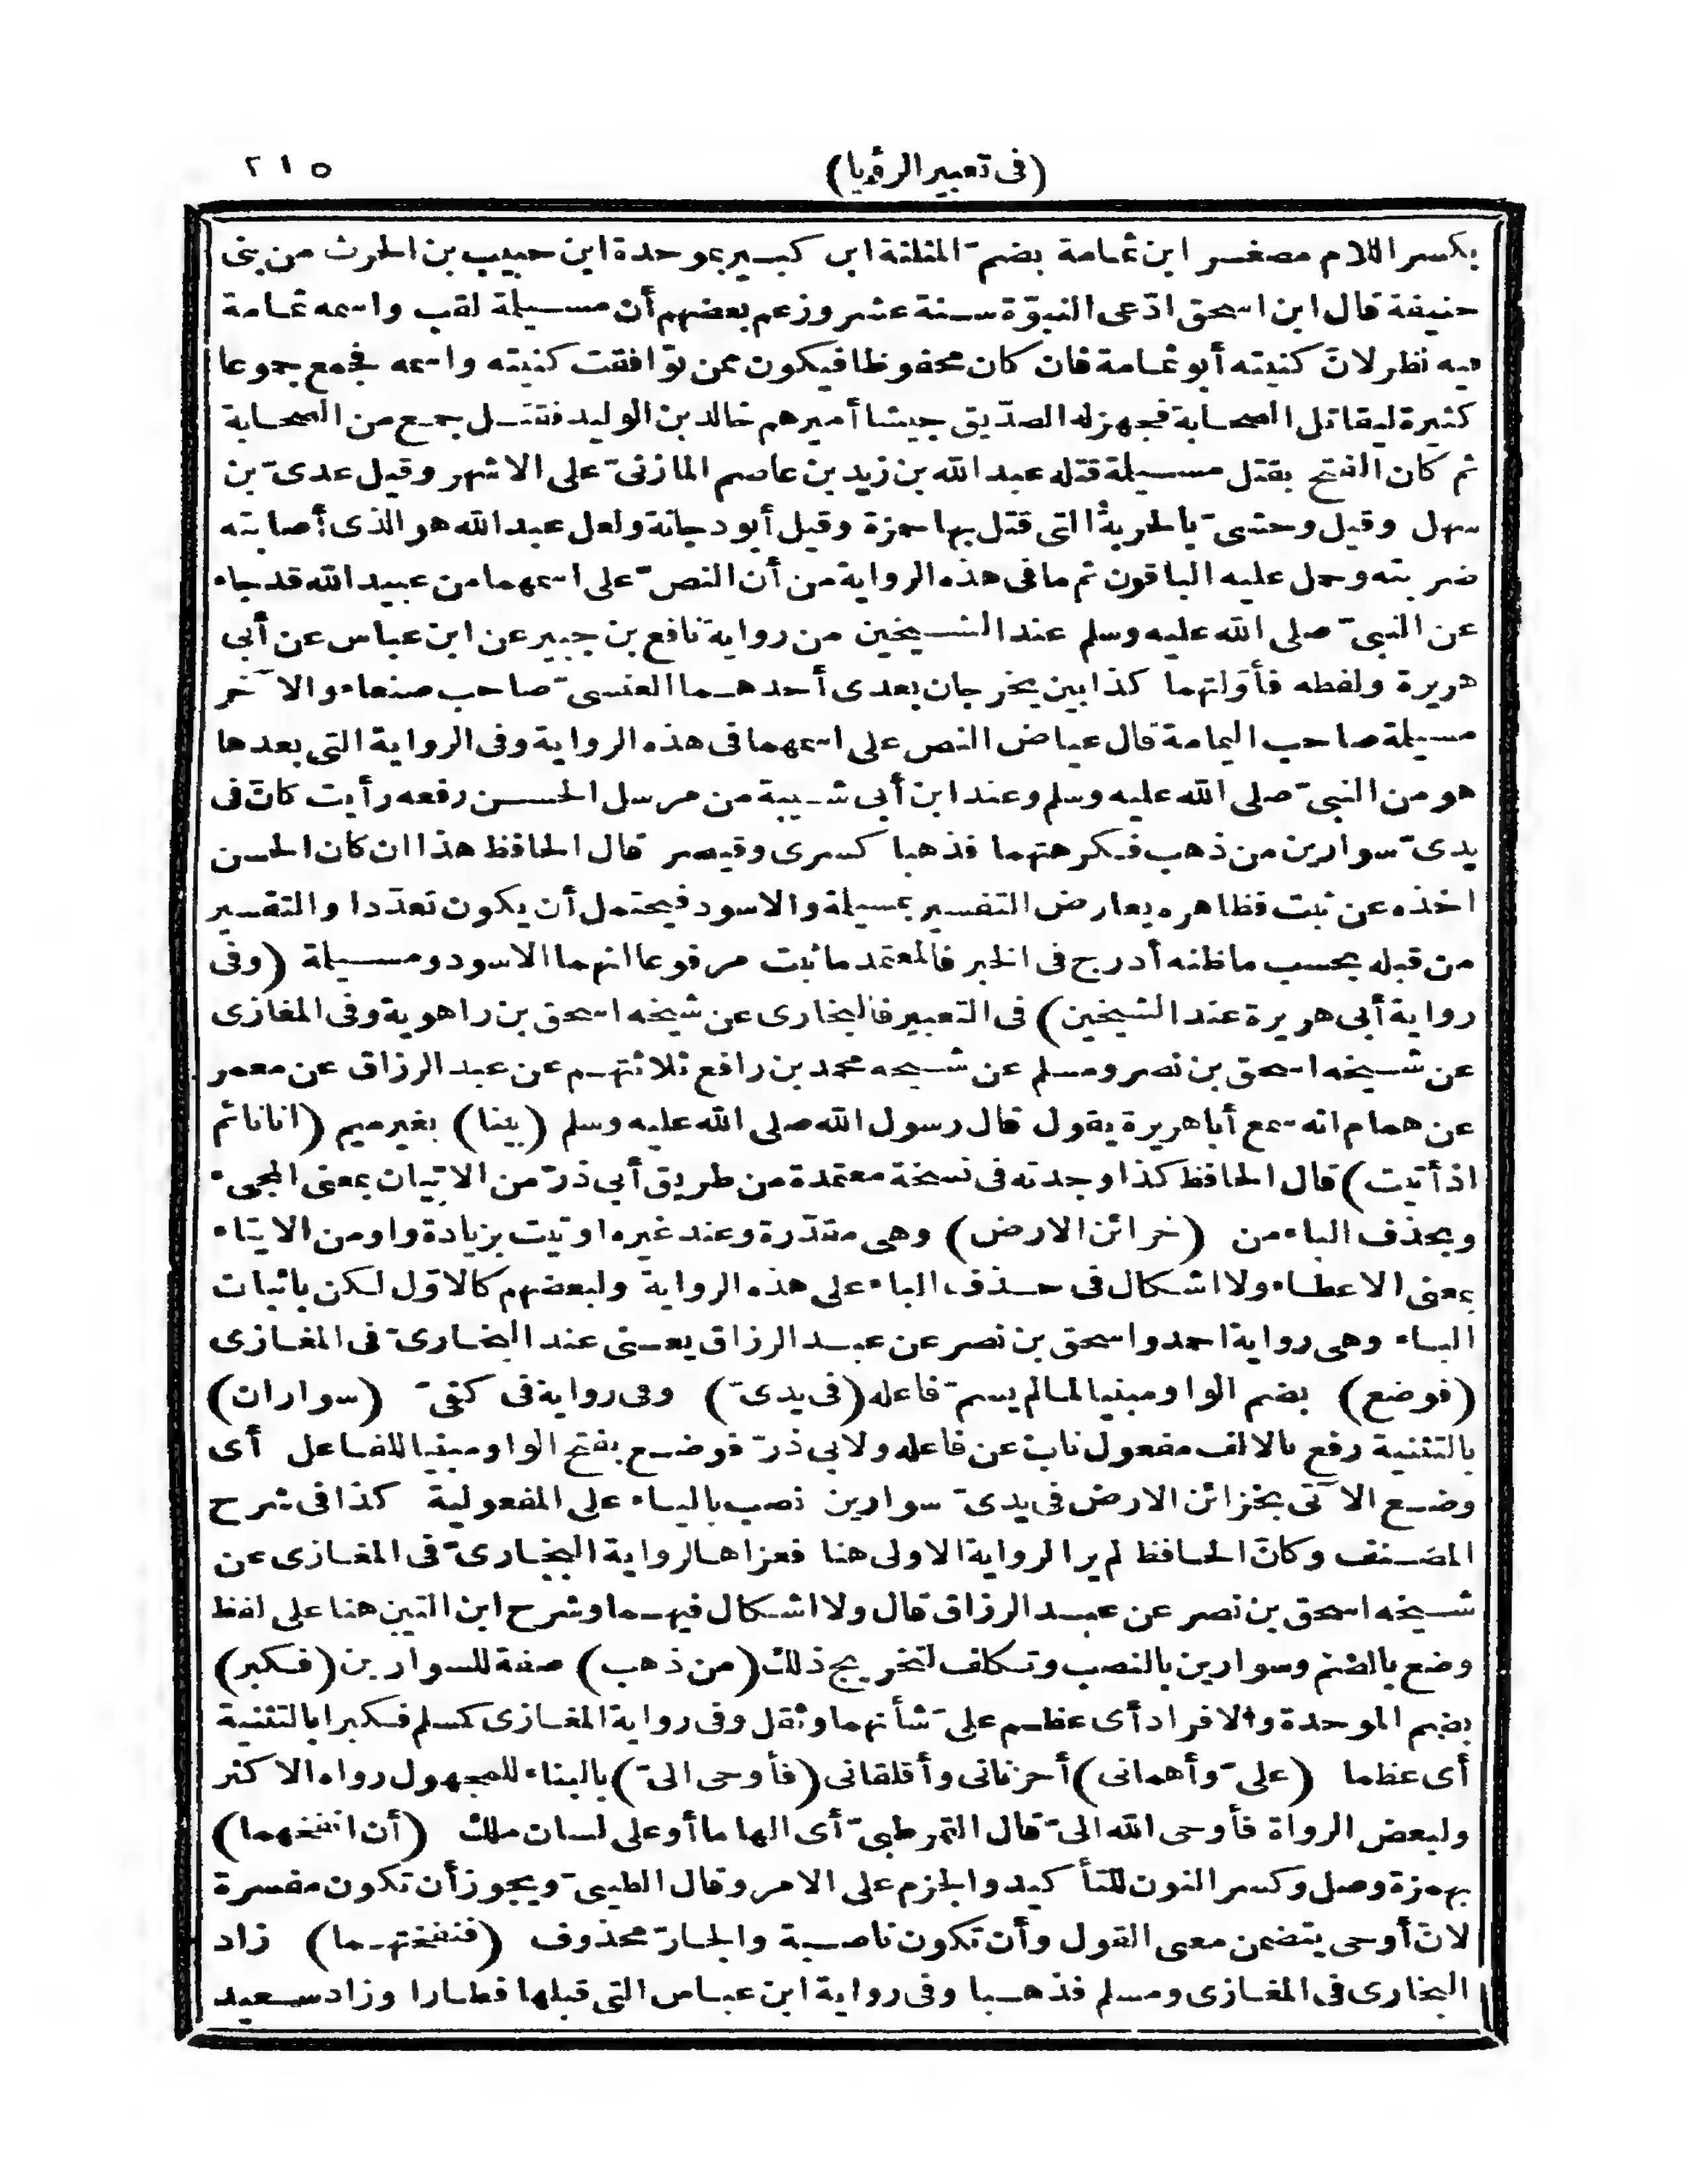 (فى تعبير الرؤيا) ٢١٥
بكسر اللام مصغر ابن ثمامة بضم المثلثة ابن كبير بموحدة ابن حبيب بن الحرث من بنى
حنيفة قال ابن اسحق ادّعى النبوّة سنة عشر وزعم بعضهم أن مسيلة لقب واسمه ثمامة
فيه نظر لانّ كنيته أبو ثمامة فان كان محفوظا فيكون ممن توافقت كنيته واسمه فجمع جموعا
كثيرة ليقاتل الصحابة فجهز له الصدّيق جيشا أميرهم خالد بن الوليد فقتل جمع من الصحابة
ثم كان الفتح بقتل مسيلة قتله عبد الله بن زيد بن عاصم المازنىّ على الاشهر وقيل عدىّ بن
سهل وقيل وحشىّ بالحربة التى قتل بها حمزة وقيل أبو دجانة ولعل عبد الله هو الذى أصابته
ضربته وحمل عليه الباقون ثم ما فى هذه الرواية من أن النصّ على اسمهما من عبيد الله قد جاء
عن النبىّ صلى الله عليه وسلم عند الشيخين من رواية نافع بن جبير عن ابن عباس عن أبى
هريرة ولفظه فأوّلتهما كذابين يخرجان بعدى أحدهما العنسىّ صاحب صنعاء والآخر
مسيلة صاحب اليمامة قال عياض النص على اسمهما فى هذه الرواية وفى الرواية التى بعدها
هو من النبىّ صلى الله عليه وسلم وعند ابن أبى شيبة من مرسل الحسن رفعه رأيت كانّ فى
يدىّ سوارين من ذهب فكرهتهما فذهبا كسرى وقيصر قال الحافظ هذا ان كان الحسن
اخذه عن ثبت فظاهره يعارض التفسير بمسيلة والاسود فيحتمل أن يكون تعدّدا والتفسير
من قبله بحسب ما ظنه أدرج فى الخبر فالمعتمد ما ثبت مرفوعا انهما الاسود ومسيلة (وفى
رواية أبى هريرة عند الشيخين) فى التعبير فالبخارى عن شيخه اسحق بن راهوية وفى المغازى
عن شيخه اسحق بن نصر ومسلم عن شيخه محمد بن رافع ثلاثتهم عن عبد الرزاق عن معمر
عن همام انه سمع أبا هريرة يقول قال رسول الله صلى الله عليه وسلم (بينا) بغير ميم (انا نائم
اذ أتيت) قال الحافظ كذا وجدته فى نسخة معتمدة من طريق أبى ذرّ من الاتيان بمعنى المجىء
وبحذف الباء من (خزائن الارض) وهى مقدّرة وعند غيره اوتيت بزيادة واو من الايتاء
بمعنى الاعطاء ولا اشكال فى حذف الباء على هذه الرواية ولبعضهم كالاوّل لكن باثبات
الباء وهى رواية احمد واسحق بن نصر عن عبد الرزاق يعنى عند البخارىّ فى المغازى
(فوضع) بضم الواو مبنيا لما لم يسمّ فاعله (فى يدىّ) وفى رواية فى كفىّ (سواران)
بالتثنية رفع بالالف مفعول ناب عن فاعله ولابى ذرّ فوضع بفتح الواو مبنيا للفاعل أى
وضع الآتى بخزائن الارض فى يدىّ سوارين نصب بالياء على المفعولية كذا فى شرح
المصنف وكانّ الحافظ لم ير الرواية الاولى هنا فعزاها لرواية البخارىّ فى المغازى عن
شيخه اسحق بن نصر عن عبد الرزاق قال ولا اشكال فيهما وشرح ابن التين هنا على لفظ
وضع بالضم وسوارين بالنصب وتكلف لتخريج ذلك (من ذهب) صفة للسوارين (فكبر)
بضم الموحدة والافراد أى عظم علىّ شأنهما وثقل وفى رواية المغازى كمسلم فكبرا بالتثنية
أى عظما (علىّ وأهمانى) أحزنانى وأقلقانى (فأوحى الىّ) بالبناء للمجهول رواه الاكثر
ولبعض الرواة فأوحى الله الىّ قال القرطبىّ أى الهاما أو على لسان ملك (أن انفخهما)
بهمزة وصل وكسر النون للتأكيد والجزم على الامر وقال الطيبىّ ويجوز أن تكون مفسرة
لانّ أوحى يتضمن معنى القول وأن تكون ناصبة والجارّ محذوف (فنفختهما) زاد
البخارى فى المغازى ومسلم فذهبا وفى رواية ابن عباس التى قبلها فطارا وزاد سعيد